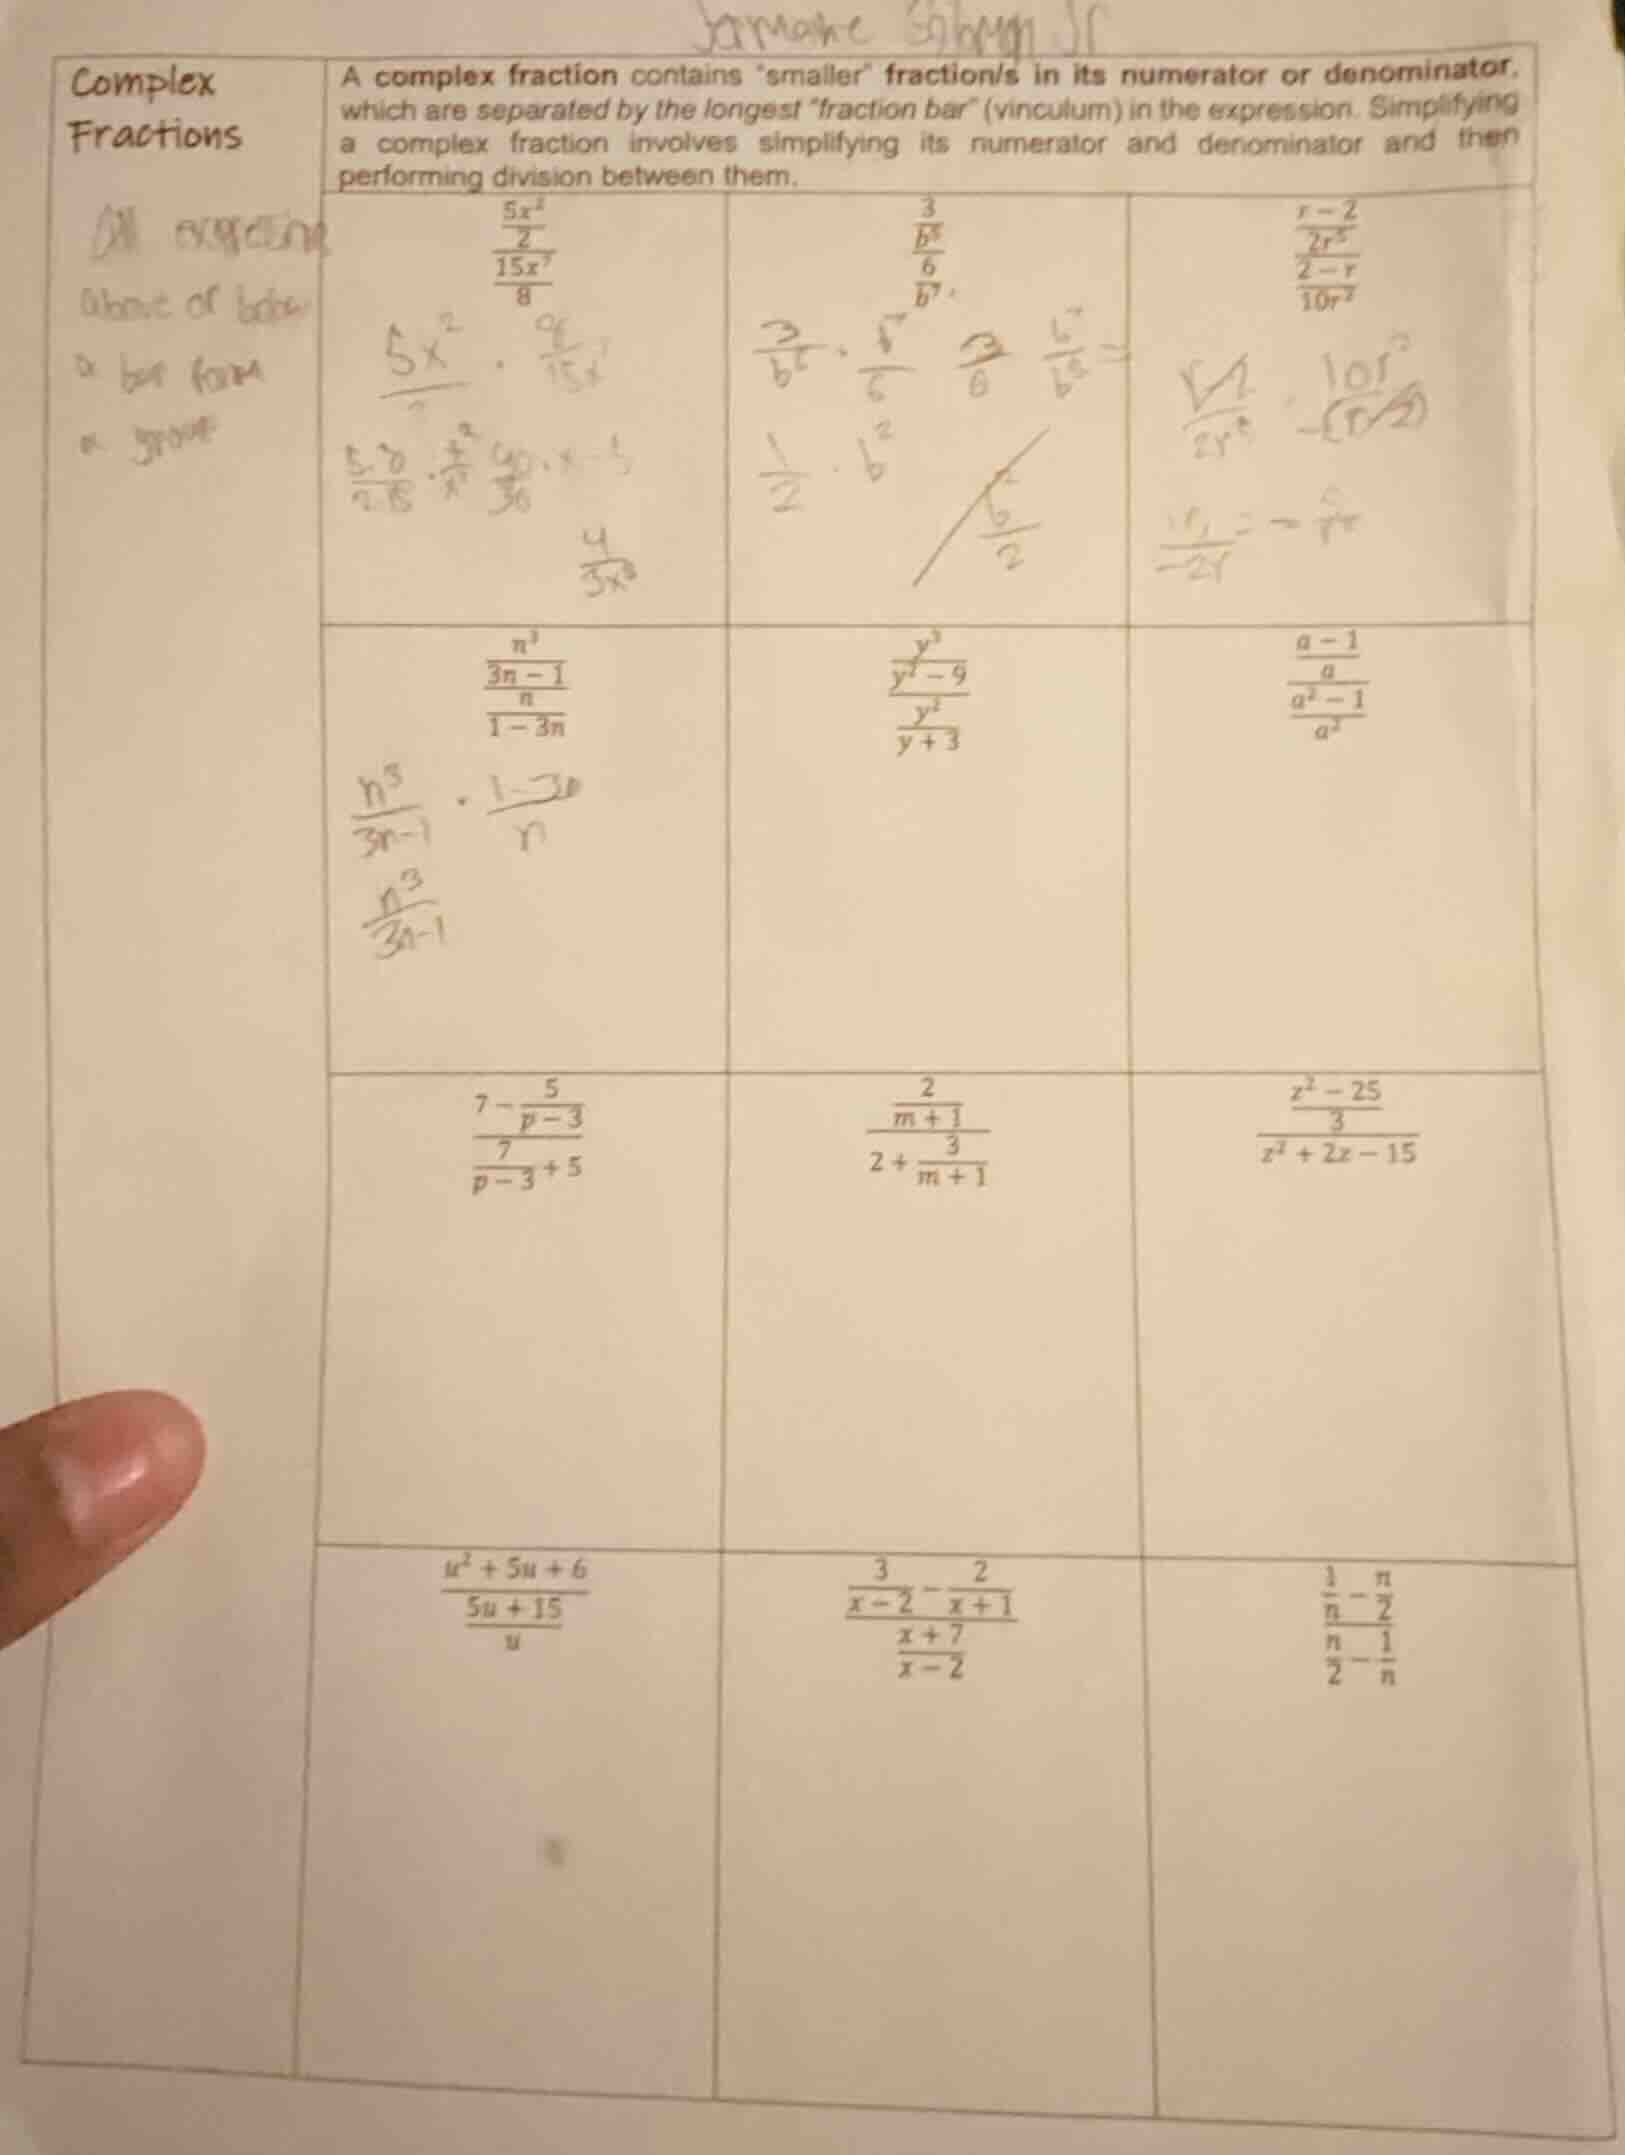 Complex
Fractions
A complex fraction contains "smaller" fraction/s in its numerator or denominator,
which are separated by the longest "fraction bar" (vinculum) in the expression. Simplifying
a complex fraction involves simplifying its numerator and denominator and then
performing division between them.
All
above or
a bar form
a
5x²
2
15x⁷
8
3
b⁵
6
b⁷
r − 2
2r⁵
2 − r
10r²
5x² ·
3/b⁵ · b⁷/6 3/6 b⁷/b⁵ =
1/2 · b²
b²/2
4/3x⁵
n³
3n − 1
n
1 − 3n
n³/3n-1 · 1-3n/n
n³/3n-1
y³
y² − 9
y²
y + 3
a − 1
a
a² − 1
a²
7 − 5/p − 3
7/p − 3 + 5
2
m + 1
2 + 3/m + 1
z² − 25
3
z² + 2z − 15
u² + 5u + 6
5u + 15
u
3/x − 2 − 2/x + 1
x + 7
x − 2
1/n − n/2
n/2 − 1/n